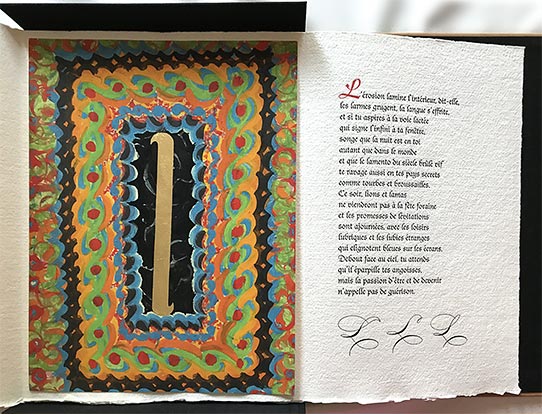 L'érosion lamine l'intérieur, dit-elle,
les larmes grugent, la langue s'effrite,
et si tu aspires à la voie lactée
qui signe l'infini à ta fenêtre,
songe que la nuit est en toi
autant que dans le monde
et que le lamento du siècle brûlé vif
te ravage aussi en tes pays secrets
comme tourbes et broussailles.
Ce soir, lions et lamas
ne viendront pas à la fête foraine
et les promesses de lévitations
sont ajournées, avec les loisirs
lubriques et les lubies étranges
qui clignotent bleues sur les écrans.
Debout face au ciel, tu attends
qu'il éparpille tes angoisses,
mais la passion d'être et de devenir
n'appelle pas de guérison.
L L L